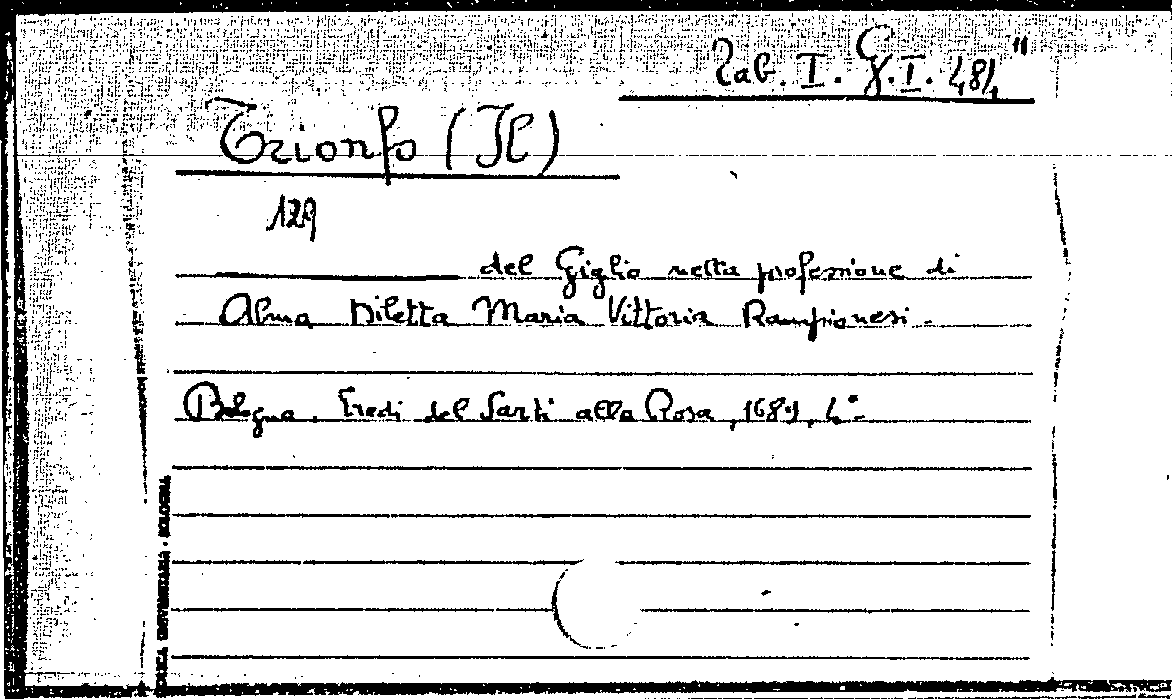 Tab. I. G. I. 48/1
Trionfo (Il)
129
del Giglio nella professione di
Alma Diletta Maria Vittoria Rampionesi.
Bologna. Eredi del Sarti alla Rosa, 1689, 4°